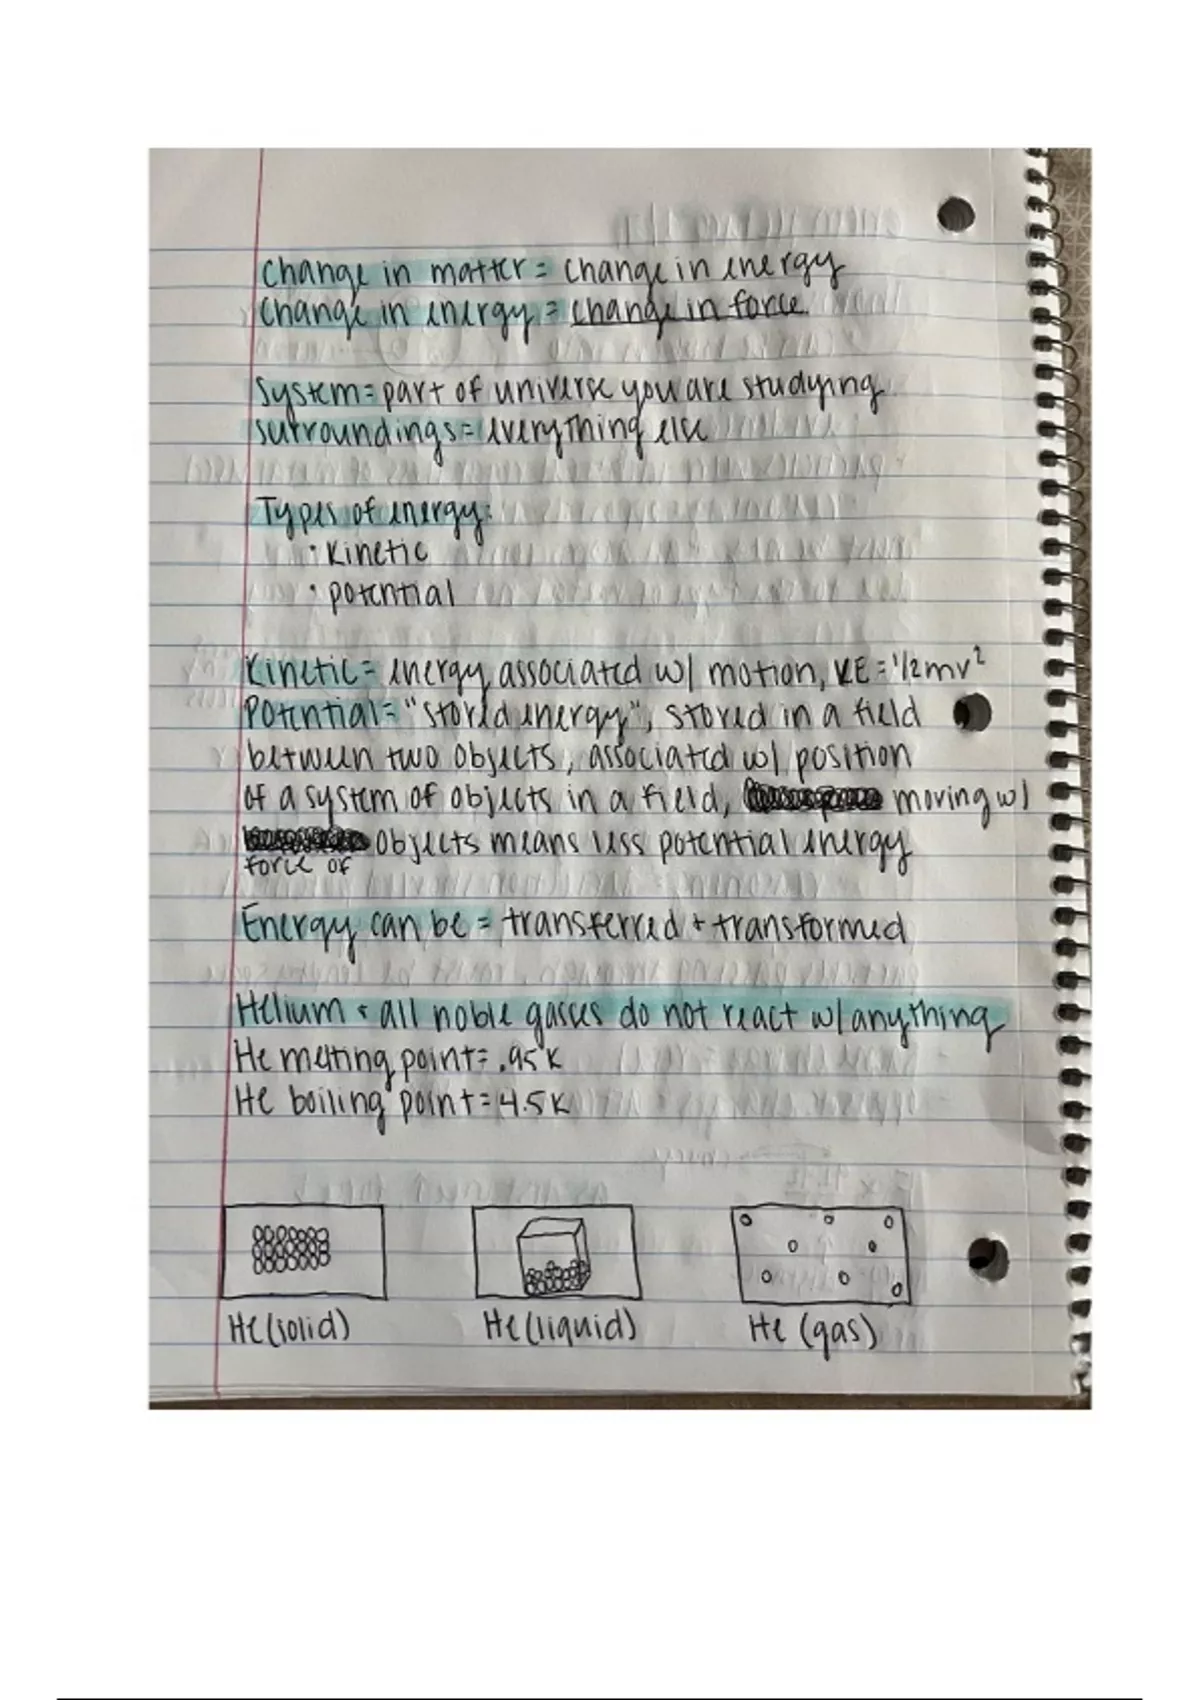 Change in matter = change in energy
Change in energy = change in force.
System = part of universe you are studying
surroundings = everything else
Types of energy:
· kinetic
· potential
Kinetic = energy associated w/ motion, KE = 1/2mv²
Potential = "stored energy", stored in a field
between two objects, associated w/ position
of a system of objects in a field, moving w/
objects means less potential energy
force of
Energy can be = transferred + transformed
Helium + all noble gasses do not react w/ anything
He melting point = .95 K
He boiling point = 4.5 K
He (solid) He (liquid) He (gas)